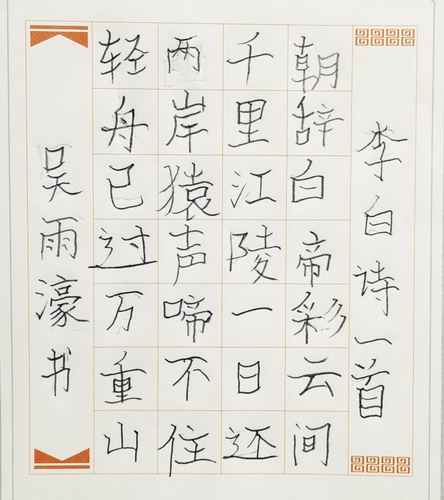 李白诗一首
朝辞白帝彩云间
千里江陵一日还
两岸猿声啼不住
轻舟已过万重山
吴雨濠书